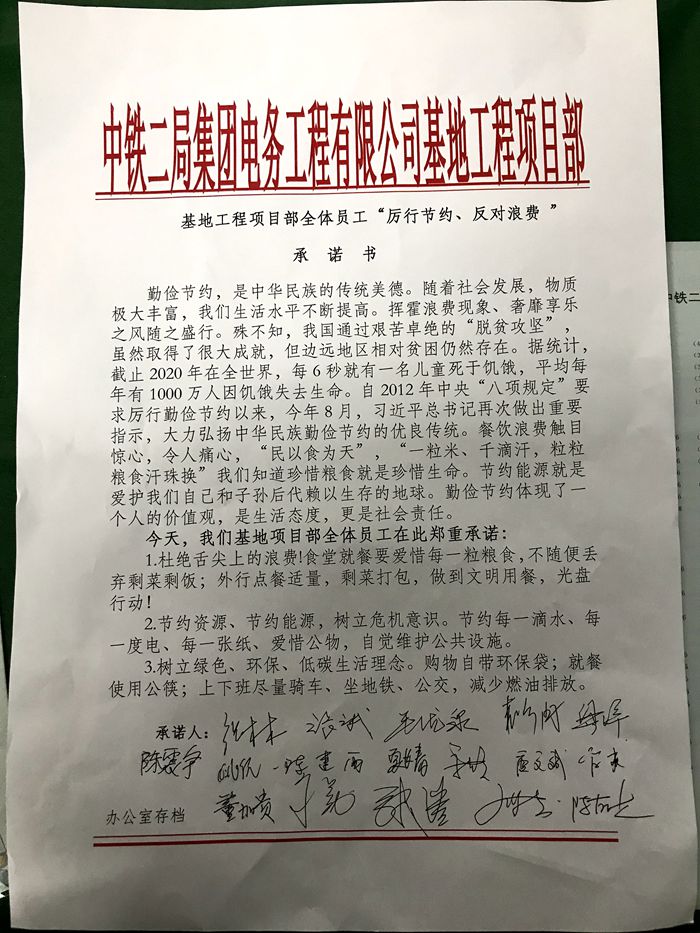 中铁二局集团电务工程有限公司基地工程项目部
基地工程项目部全体员工“厉行节约、反对浪费 ”
承 诺 书
勤俭节约，是中华民族的传统美德。随着社会发展，物质
极大丰富，我们生活水平不断提高。挥霍浪费现象、奢靡享乐
之风随之盛行。殊不知，我国通过艰苦卓绝的“脱贫攻坚”，
虽然取得了很大成就，但边远地区相对贫困仍然存在。据统计，
截止 2020 年在全世界，每 6 秒就有一名儿童死于饥饿，平均每
年有 1000 万人因饥饿失去生命。自 2012 年中央“八项规定”要
求厉行勤俭节约以来，今年 8 月，习近平总书记再次做出重要
指示，大力弘扬中华民族勤俭节约的优良传统。餐饮浪费触目
惊心，令人痛心，“民以食为天”，“一粒米、千滴汗，粒粒
粮食汗珠换”我们知道珍惜粮食就是珍惜生命。节约能源就是
爱护我们自己和子孙后代赖以生存的地球。勤俭节约体现了一
个人的价值观，是生活态度，更是社会责任。
今天，我们基地项目部全体员工在此郑重承诺：
1.杜绝舌尖上的浪费!食堂就餐要爱惜每一粒粮食,不随便丢
弃剩菜剩饭；外行点餐适量，剩菜打包，做到文明用餐，光盘
行动！
2.节约资源、节约能源，树立危机意识。节约每一滴水、每
一度电、每一张纸、爱惜公物，自觉维护公共设施。
3.树立绿色、环保、低碳生活理念。购物自带环保袋；就餐
使用公筷；上下班尽量骑车、坐地铁、公交，减少燃油排放。
承诺人：
办公室存档
中铁二